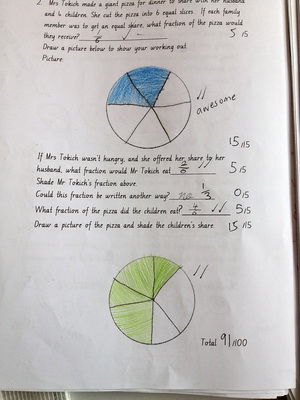 2. Mrs Tokich made a giant pizza for dinner to share with her husband
and 4 children. She cut the pizza into 6 equal slices. If each family
member was to get an equal share, what fraction of the pizza would
they receive? 1/6 ✓ 5/5
Draw a picture below to show your working out.
Picture:
✓✓
awesome
15/15
If Mrs Tokich wasn't hungry, and she offered her share to her
husband, what fraction would Mr Tokich eat 2/6 ✓✓ 5/5
Shade Mr Tokich's fraction above.
Could this fraction be written another way? no 1/3 0/5
What fraction of the pizza did the children eat? 4/6 ✓✓ 5/5
Draw a picture of the pizza and shade the children's share. 15/15
✓✓
Total 91/100